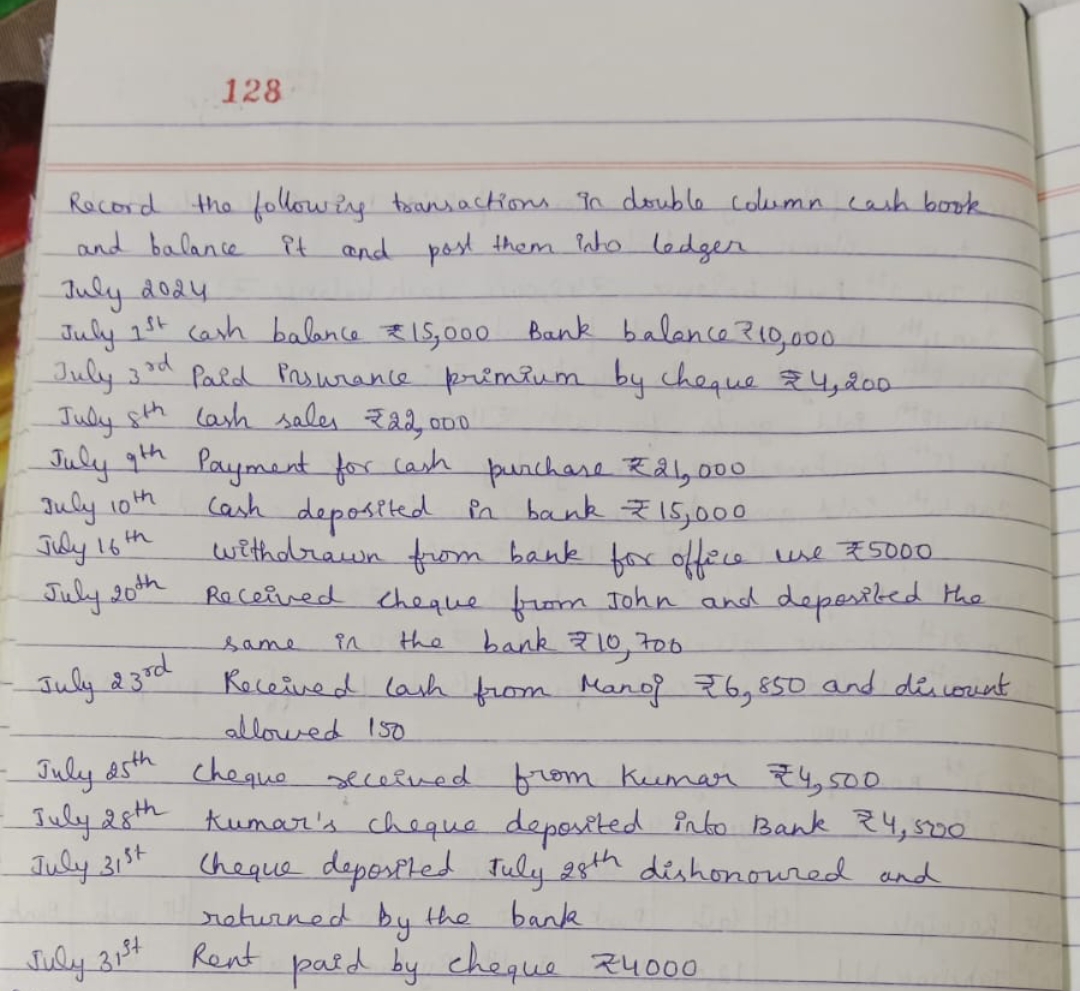 128
Record the following transactions in double column cash book
and balance it and post them into ledger
July 2024
July 1st cash balance ₹15,000 Bank balance ₹10,000
July 3rd Paid insurance primium by cheque ₹4,200
July 8th Cash sales ₹22,000
July 9th Payment for cash purchase ₹21,000
July 10th Cash deposited in bank ₹15,000
July 16th withdrawn from bank for office use ₹5000
July 20th Received cheque from John and deposited the
same in the bank ₹10,700
July 23rd Received Cash from Manoj ₹6,850 and discount
allowed 150
July 25th Cheque received from Kumar ₹4,500
July 28th Kumar's cheque deposited into Bank ₹4,500
July 31st Cheque deposited July 28th dishonoured and
returned by the bank
July 31st Rent paid by cheque ₹4000